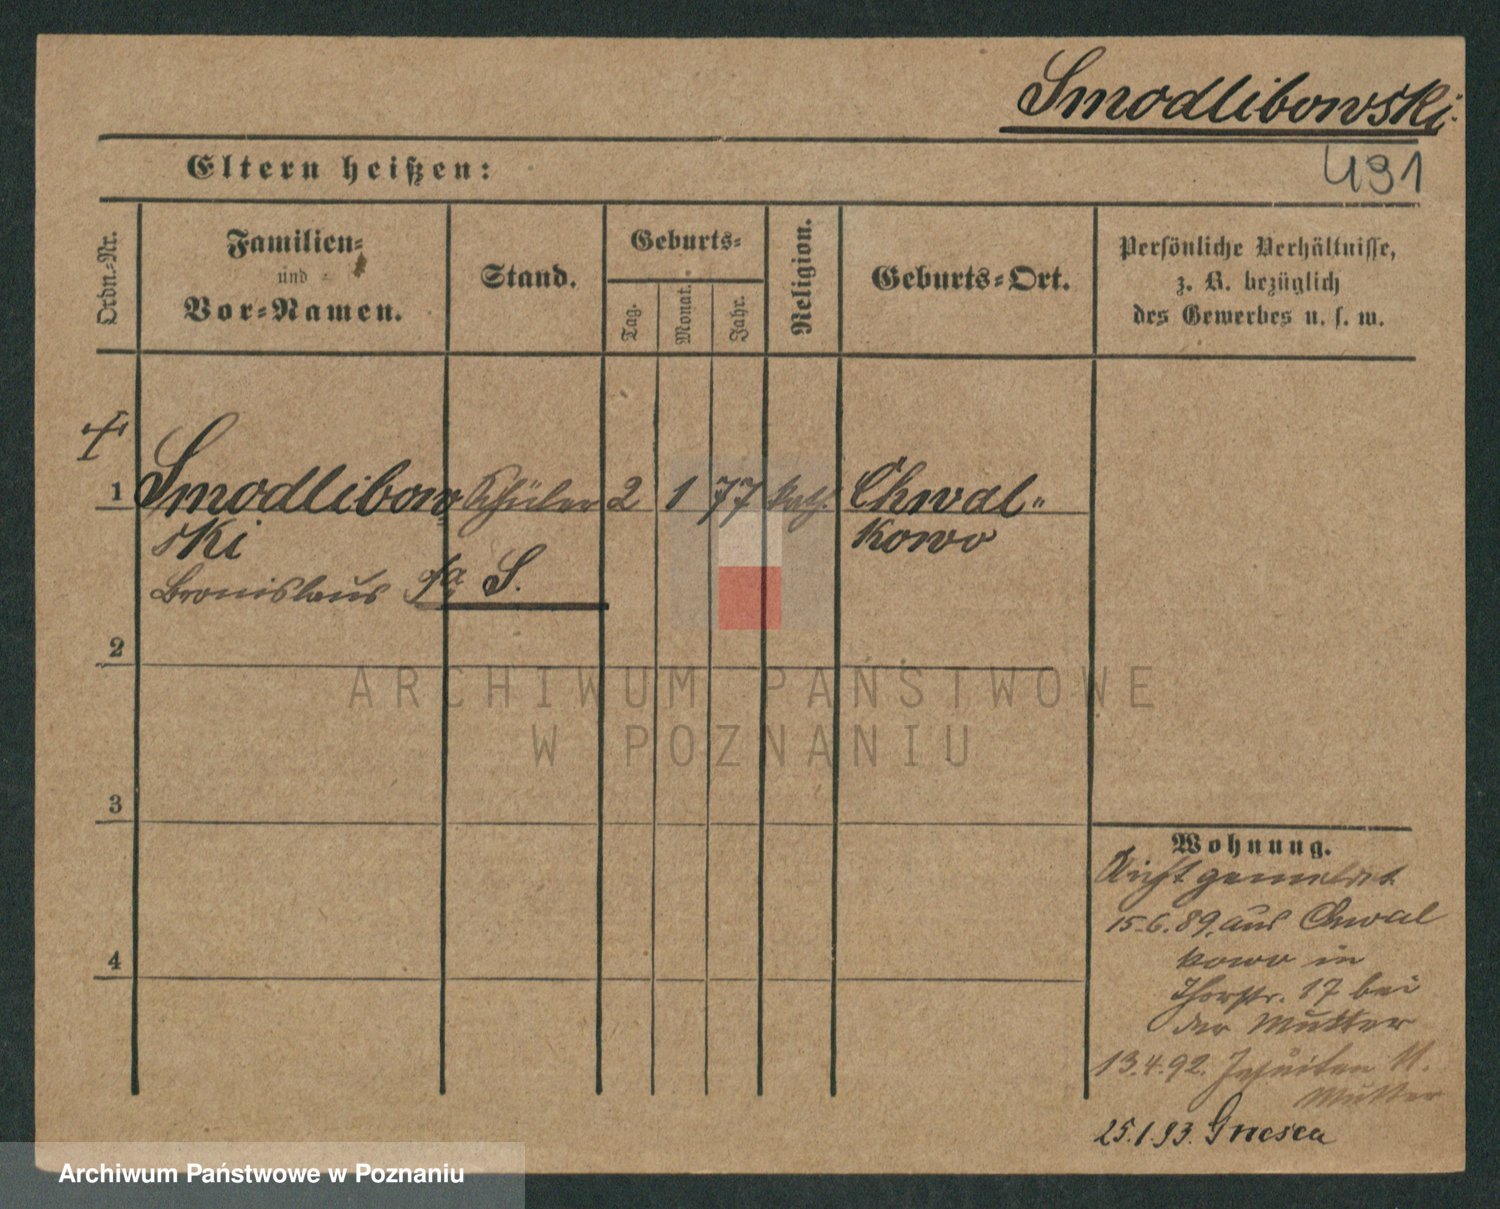 Smodlibowski.
Eltern heißen:
491
Ordn.-Nr.
Familien-
und
Vor-Namen.
Stand.
Geburts-
Tag.
Monat.
Jahr.
Religion.
Geburts-Ort.
Persönliche Verhältnisse,
z. B. bezüglich
des Gewerbes u. s. w.
1 Smodlibow Schüler 2 1 77 kath. Chwal-
ski kowo
Bronislaus S.
2
ARCHIWUM PAŃSTWOWE
W POZNANIU
3
4
Wohnung.
Nicht gemeldet
15.6.89. aus Chwal
kowo in
17 bei
der Mutter
13.4.92. Jesuiten 11.
Mutter
25.1.93. Gnesen
Archiwum Państwowe w Poznaniu